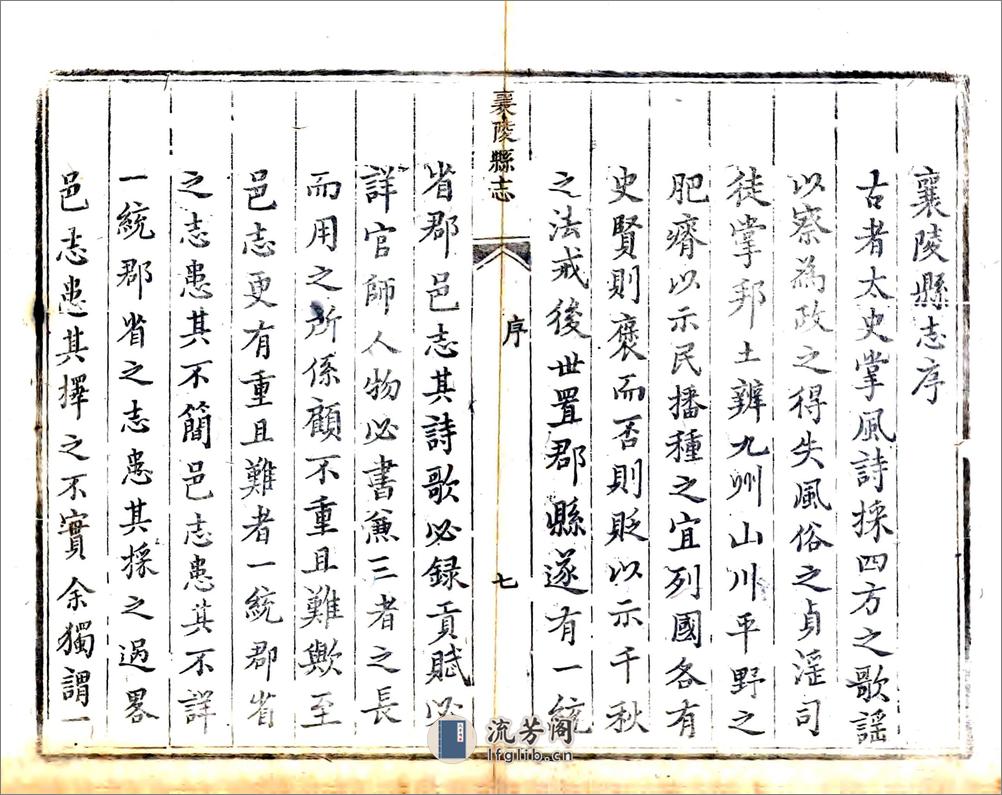 襄陵縣志序
古者太史掌風詩採四方之歌謡
以察為政之得失風俗之貞淫司
徒掌邦土辨九州山川平野之
肥瘠以示民播種之宜列國各有
史賢則襃而否則貶以示千秋
之法戒後世置郡縣遂有一統
襄陵縣志
序
七
省郡邑志其詩歌必録貢賦必
詳官師人物必書兼三者之長
而用之所係顧不重且難歟至
邑志更有重且難者一統郡省
之志患其不簡邑志患其不詳
一統郡省之志患其採之過畧
邑志患其擇之不實余獨謂一
流芳阁
lfglib.cn